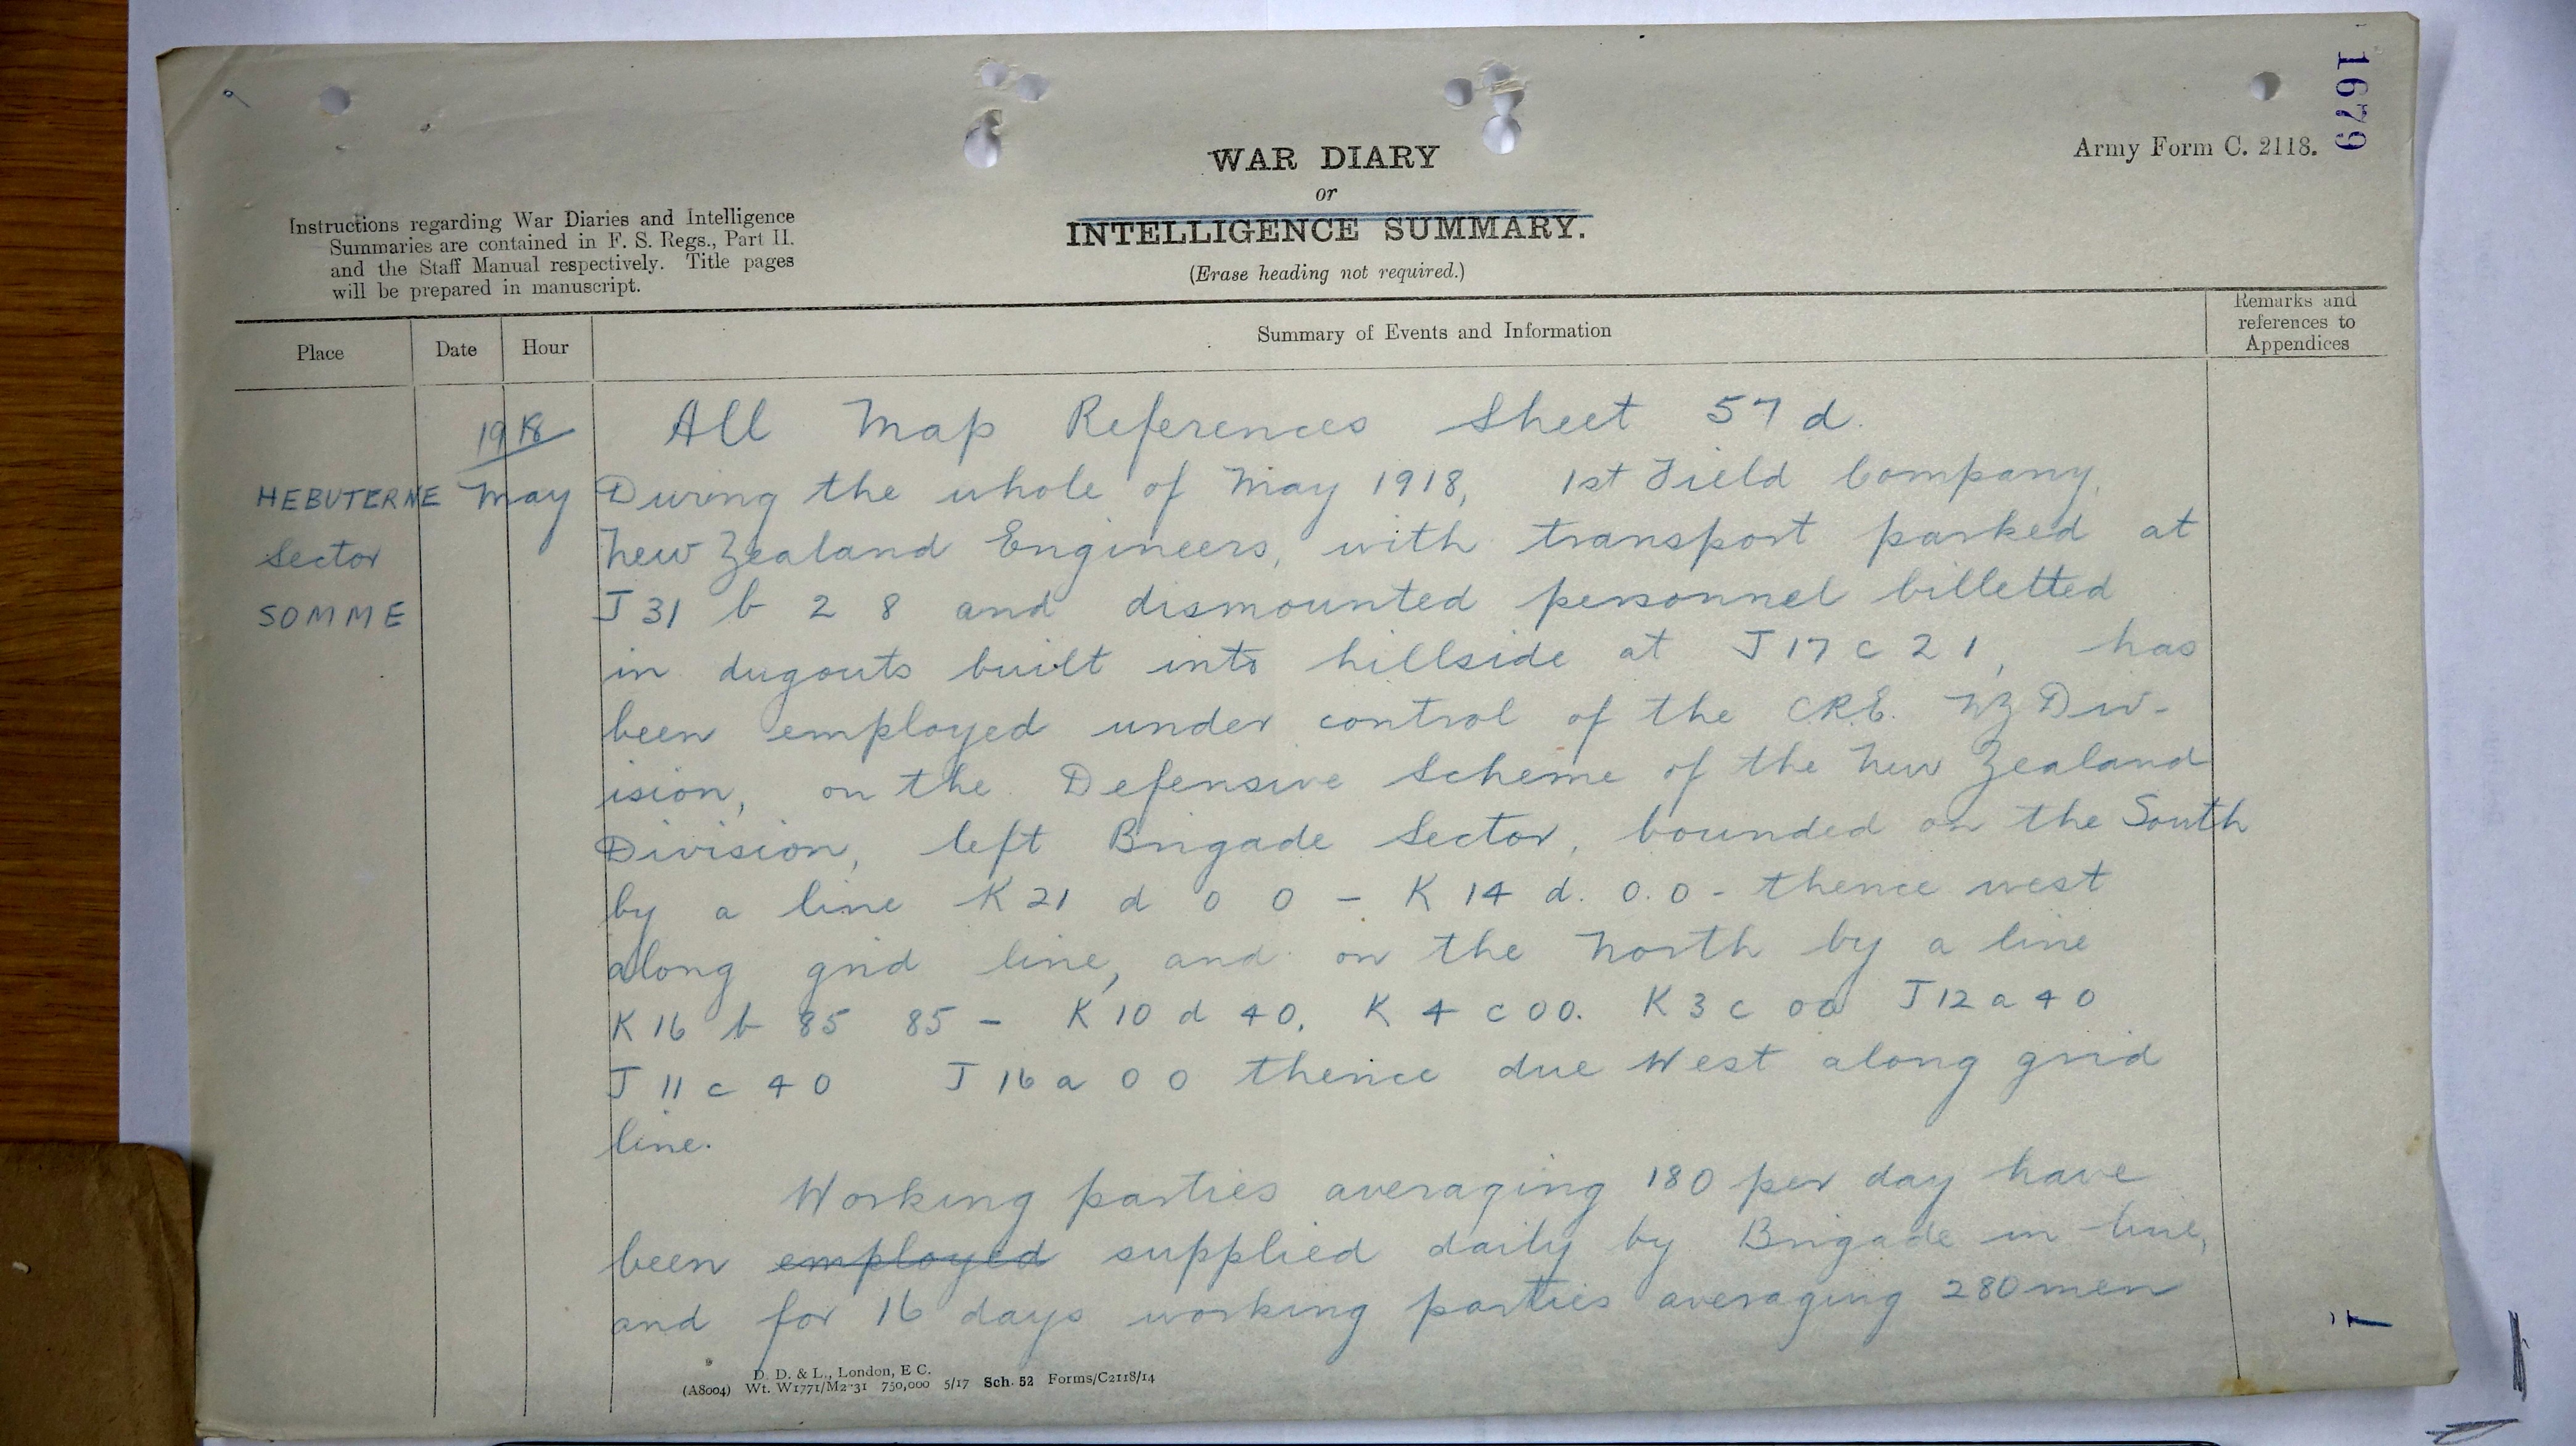 1679
Army Form C. 2118.
WAR DIARY
or
INTELLIGENCE SUMMARY.
(Erase heading not required.)
Instructions regarding War Diaries and Intelligence
Summaries are contained in F. S. Regs., Part II.
and the Staff Manual respectively. Title pages
will be prepared in manuscript.
Place
Date
Hour
Summary of Events and Information
Remarks and
references to
Appendices
1918
HEBUTERNE
Sector
SOMME
May
All Map References Sheet 57 d.
During the whole of May 1918, 1st Field Company,
New Zealand Engineers, with transport parked at
J 31 b 2 8 and dismounted personnel billetted
in dugouts built into hillside at J 17 c 2 1, has
been employed under control of the C.R.E. NZ Div-
ision, on the Defensive Scheme of the New Zealand
Division, left Brigade Sector, bounded on the South
by a line K 21 d 0 0 - K 14 d. 0.0 - thence west
along grid line, and on the North by a line
K 16 b 85 85 - K 10 d 40, K 4 c 00. K 3 c 00 J 12 a 4 0
J 11 c 4 0 J 16 a 0 0 thence due West along grid
line.
Working parties averaging 180 per day have
been employed supplied daily by Brigade in line,
and for 16 days working parties averaging 280 men
D. D. & L., London, E C.
(A8004) Wt. W1771/M2 31 750,000 5/17 Sch. 52 Forms/C2118/14
1